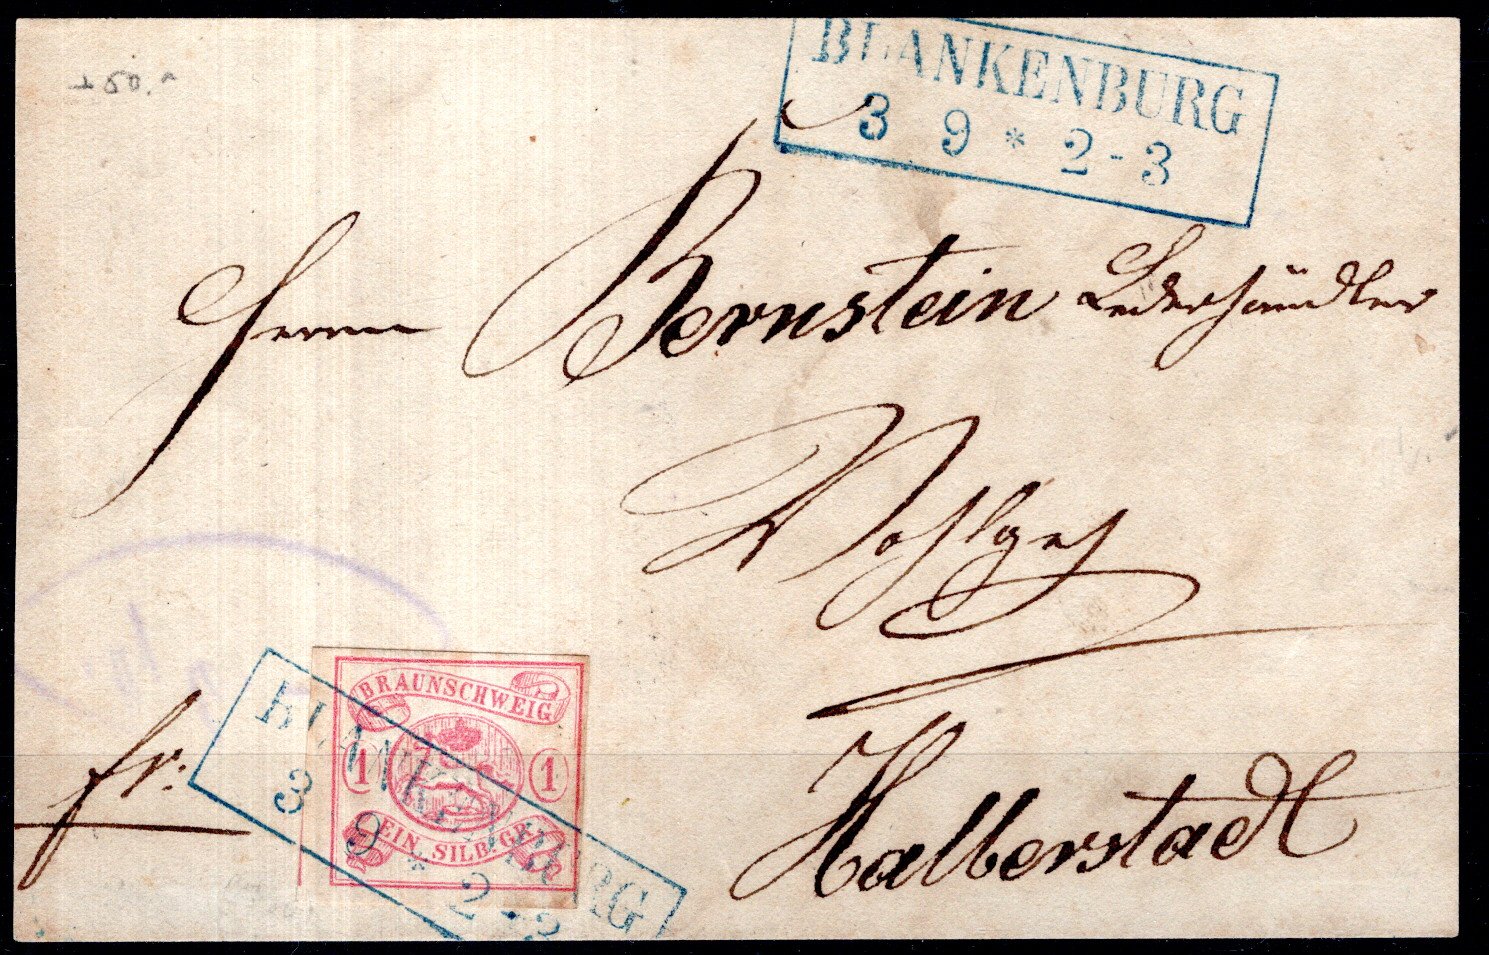 ± 50.-
BLANKENBURG
3 9 * 2-3
Herrn Bernstein Lederhändler
Wohlgeb
Halberstadt
fr:
BRAUNSCHWEIG
1 1
EIN SILB. GR.
BLANKENBURG
3 9 * 2-3